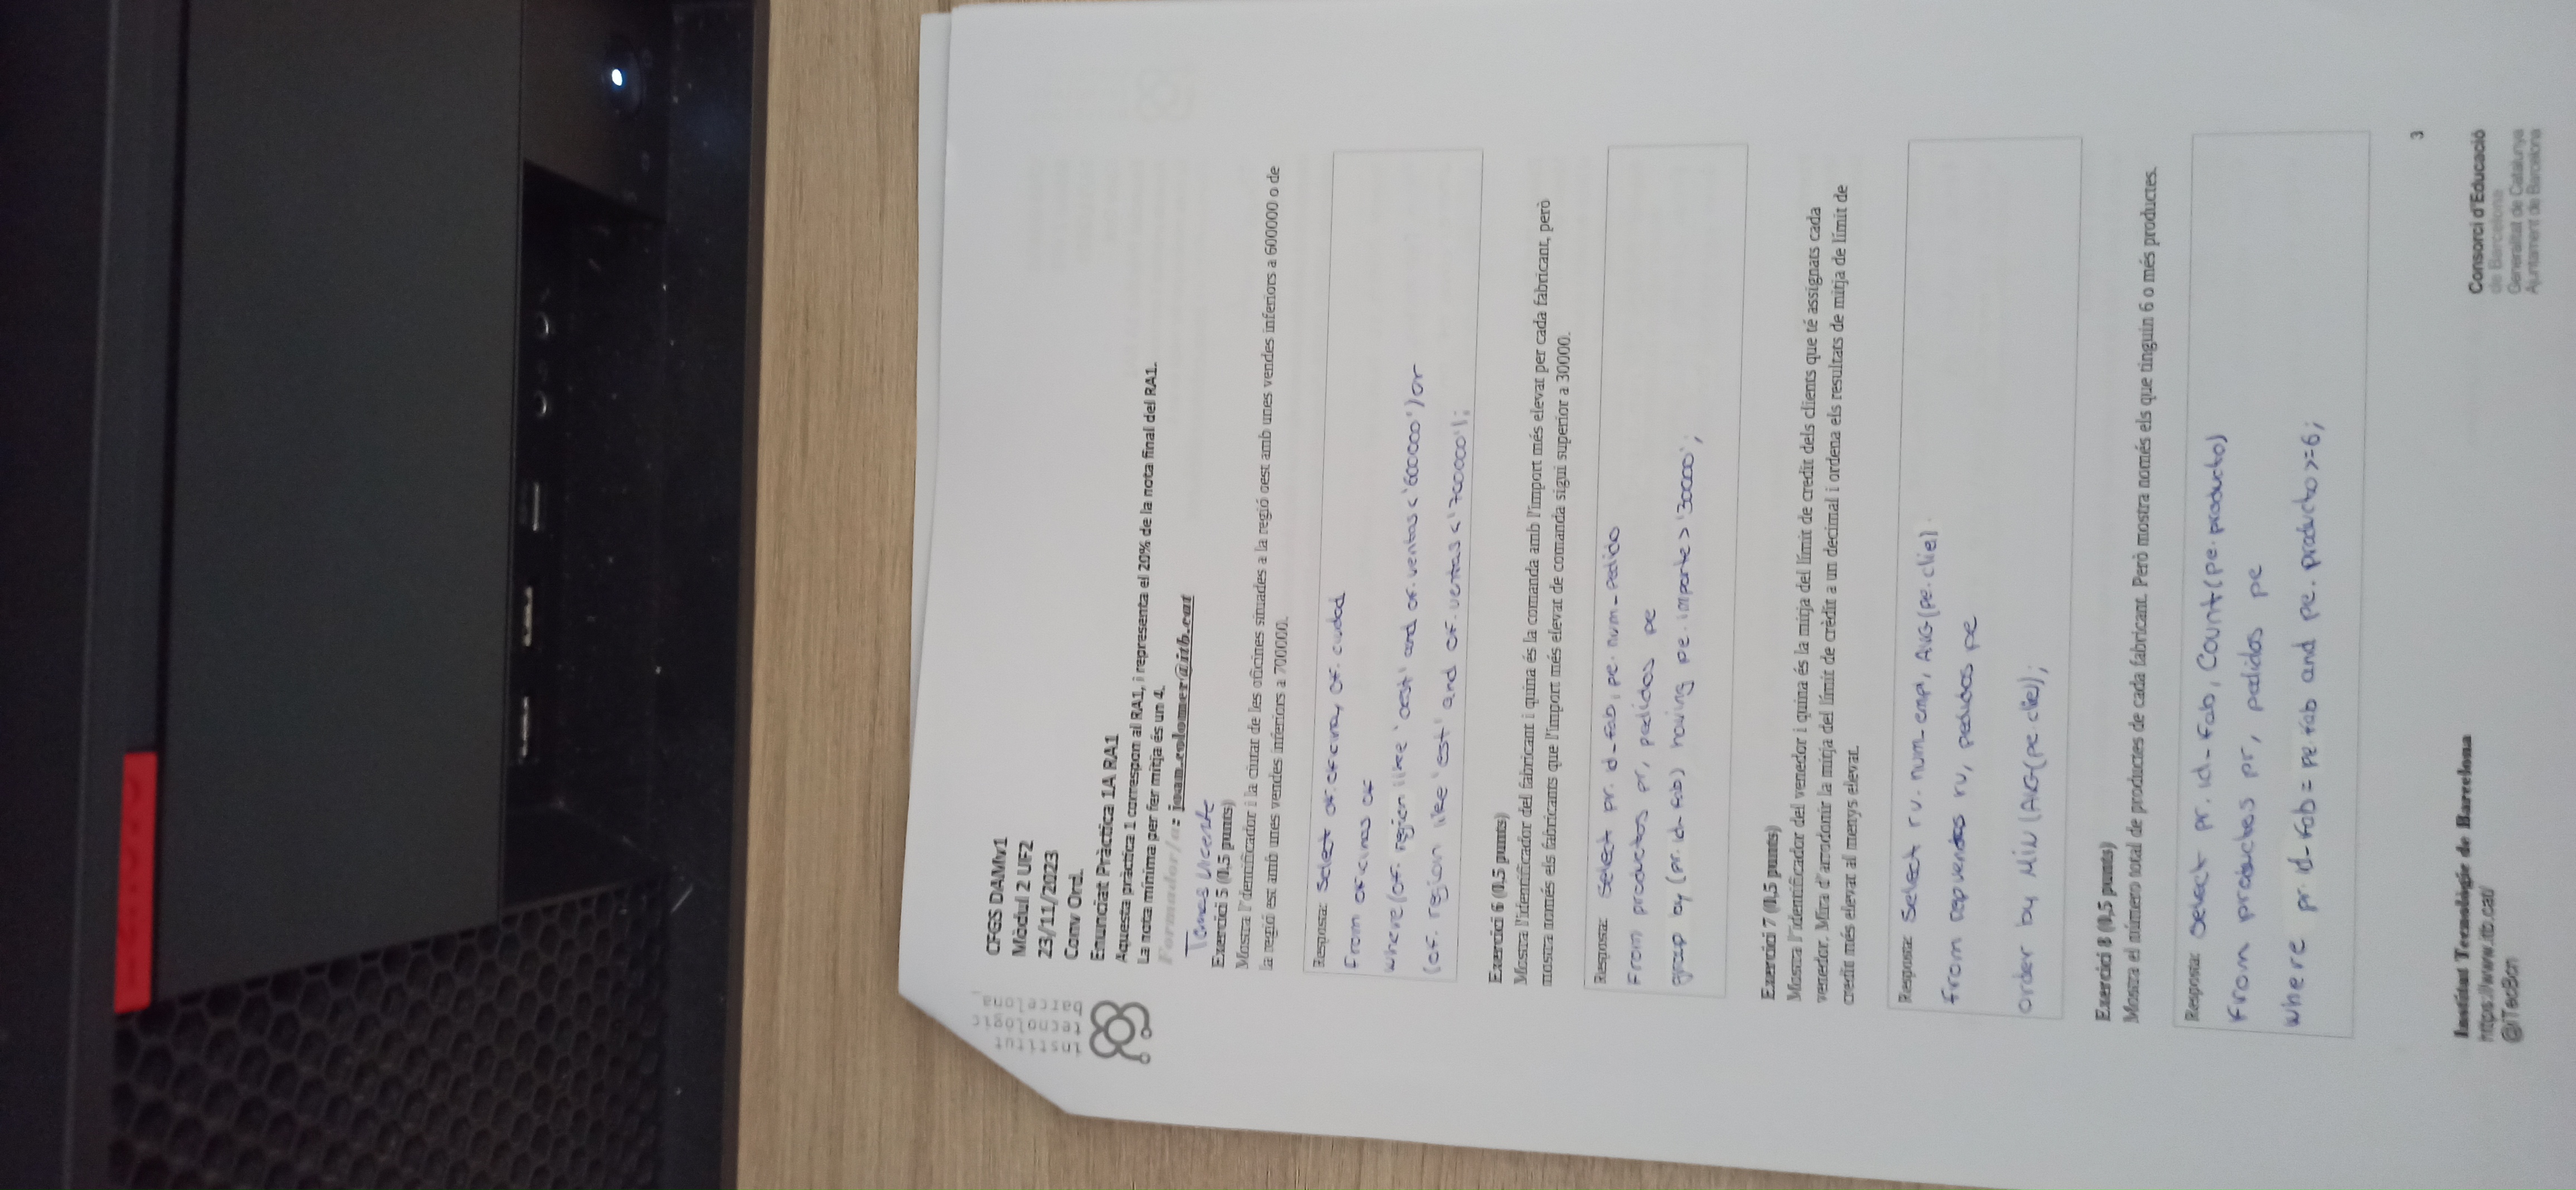 institut
tecnològic
barcelona_
CFGS DAMv1
Mòdul 2 UF2
23/11/2023
Conv Ord.
Enunciat Pràctica 1A RA1
Aquesta pràctica 1 correspon al RA1, i representa el 20% de la nota final del RA1.
La nota mínima per fer mitja és un 4.
Formador/a: joan.colomer@itb.cat
Tomas Vicente
Exercici 5 (0,5 punts)
Mostra l'dentificador i la ciutat de les oficines situades a la regió oest amb unes vendes inferiors a 600000 o de
la regió est amb unes vendes inferiors a 700000.
Resposta: Select of.oficina, of.ciudad
From oficinas of
where (of. region like 'oest' and of.ventas < '600000') or
(of. region like 'est' and of.ventas < '700000');
Exercici 6 (0,5 punts)
Mostra l'identificador del fabricant i quina és la comanda amb l'import més elevat per cada fabricant, però
mostra només els fabricants que l'import més elevat de comanda sigui superior a 30000.
Resposta: Select pr. id_fab, pe. num_pedido
From productos pr, pedidos pe
group by (pr. id_fab) having pe. importe > '30000';
Exercici 7 (0,5 punts)
Mostra l'identificador del venedor i quina és la mitja del límit de credit dels clients que té assignats cada
venedor. Mira d'arrodonir la mitja del límit de crèdit a un decimal i ordena els resultats de mitja de límit de
credit més elevat al menys elevat.
Resposta: Select rv. num_emp, AVG(pe.clie)
from repventas rv, pedidos pe
order by MIN (AVG(pe.clie));
Exercici 8 (0,5 punts)
Mostra el número total de productes de cada fabricant. Però mostra només els que tinguin 6 o més productes.
Resposta: Select pr. id_fab, Count(pe.producto)
From productos pr, pedidos pe
where pr.id_fab = pe.fab and pe. producto >=6;
3
Institut Tecnològic de Barcelona
https://www.itb.cat/
@iTecBcn
Consorci d'Educació
de Barcelona
Generalitat de Catalunya
Ajuntament de Barcelona